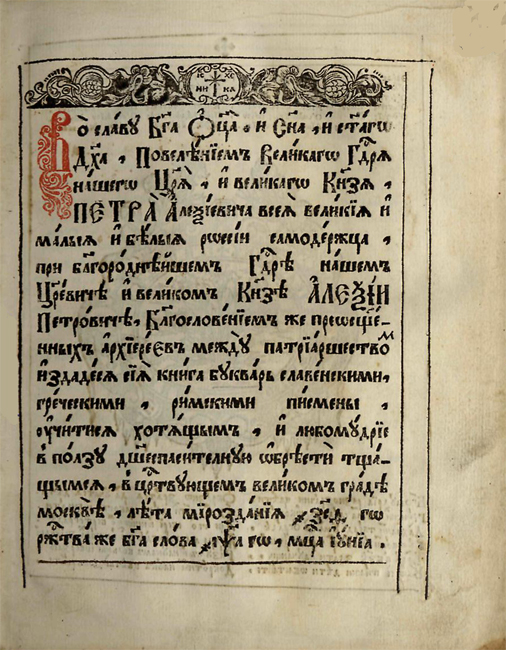 ІС ХС
НИ КА
Во славу Бг҃а Ѻц҃а , и҆ Сн҃а , и҆ ст҃агѡ
Дх҃а , Повелѣніемъ Великагѡ Гдⷭ҇ря
нашегѡ Цр҃я , и҆ великагѡ Кнѕ҃я ,
ПЕТРА̀ А҆леѯіевича всеѧ̀ великїѧ и҆
малыѧ и҆ бѣлыѧ рѡсеїи самодержца ,
при благороднѣйшемъ Гдⷭ҇рѣ нашемъ
Црⷭ҇евичѣ и҆ великомъ Кнѕ҃ѣ А҆ЛЕѮІИ
Петровичѣ , Благословенїемъ же преѡсщ҃е-
нныхъ а҆рхїереєвъ междѹ патрїаршествомъ
и҆здадеся сїѧ̀ книга бꙋкварь славенскими ,
греческими , римскими писмены ,
ѹ҆читися хотѧщымъ , и҆ любомудрїе
в ползу дш҃еспасителную ѡ҆брѣсти тща-
щымся , в црⷭ҇твующемъ великомъ градѣ
москвѣ , лѣта мїрозданїѧ ҂зс҃ѳ гѡ
ржⷭ҇тва же бг҃а слова ҂аѱ҃а гѡ , мцⷭ҇а їꙋнїа .